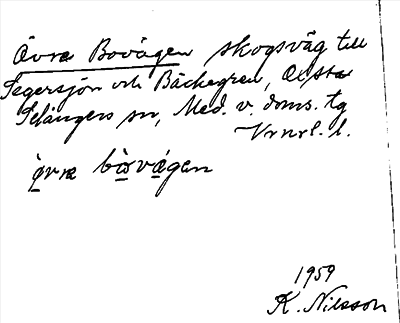 Övre Bovägen skogsväg till
Segersjön och Bäckegren,
Selångers sn, Med. v. doms. tg
Vrnrl. l.
övre bovägen
1959
K. Nilsson